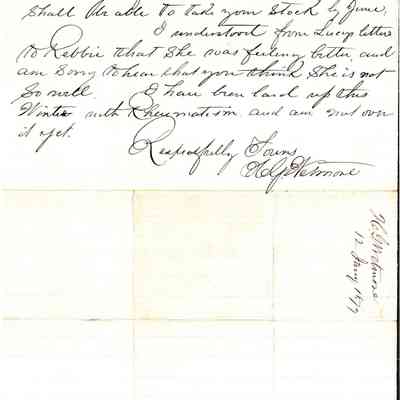 shall be able to take your stock by June.
I understood from Lucys letter
to Robbie that she was feeling better and
am Sorry to hear that you think She is not
So well. I have been laid up this
Winter with Rheumatism and am not over
it yet.
Respectfully Yours
H G Wetmore
H G Wetmore
12 Jany 1877